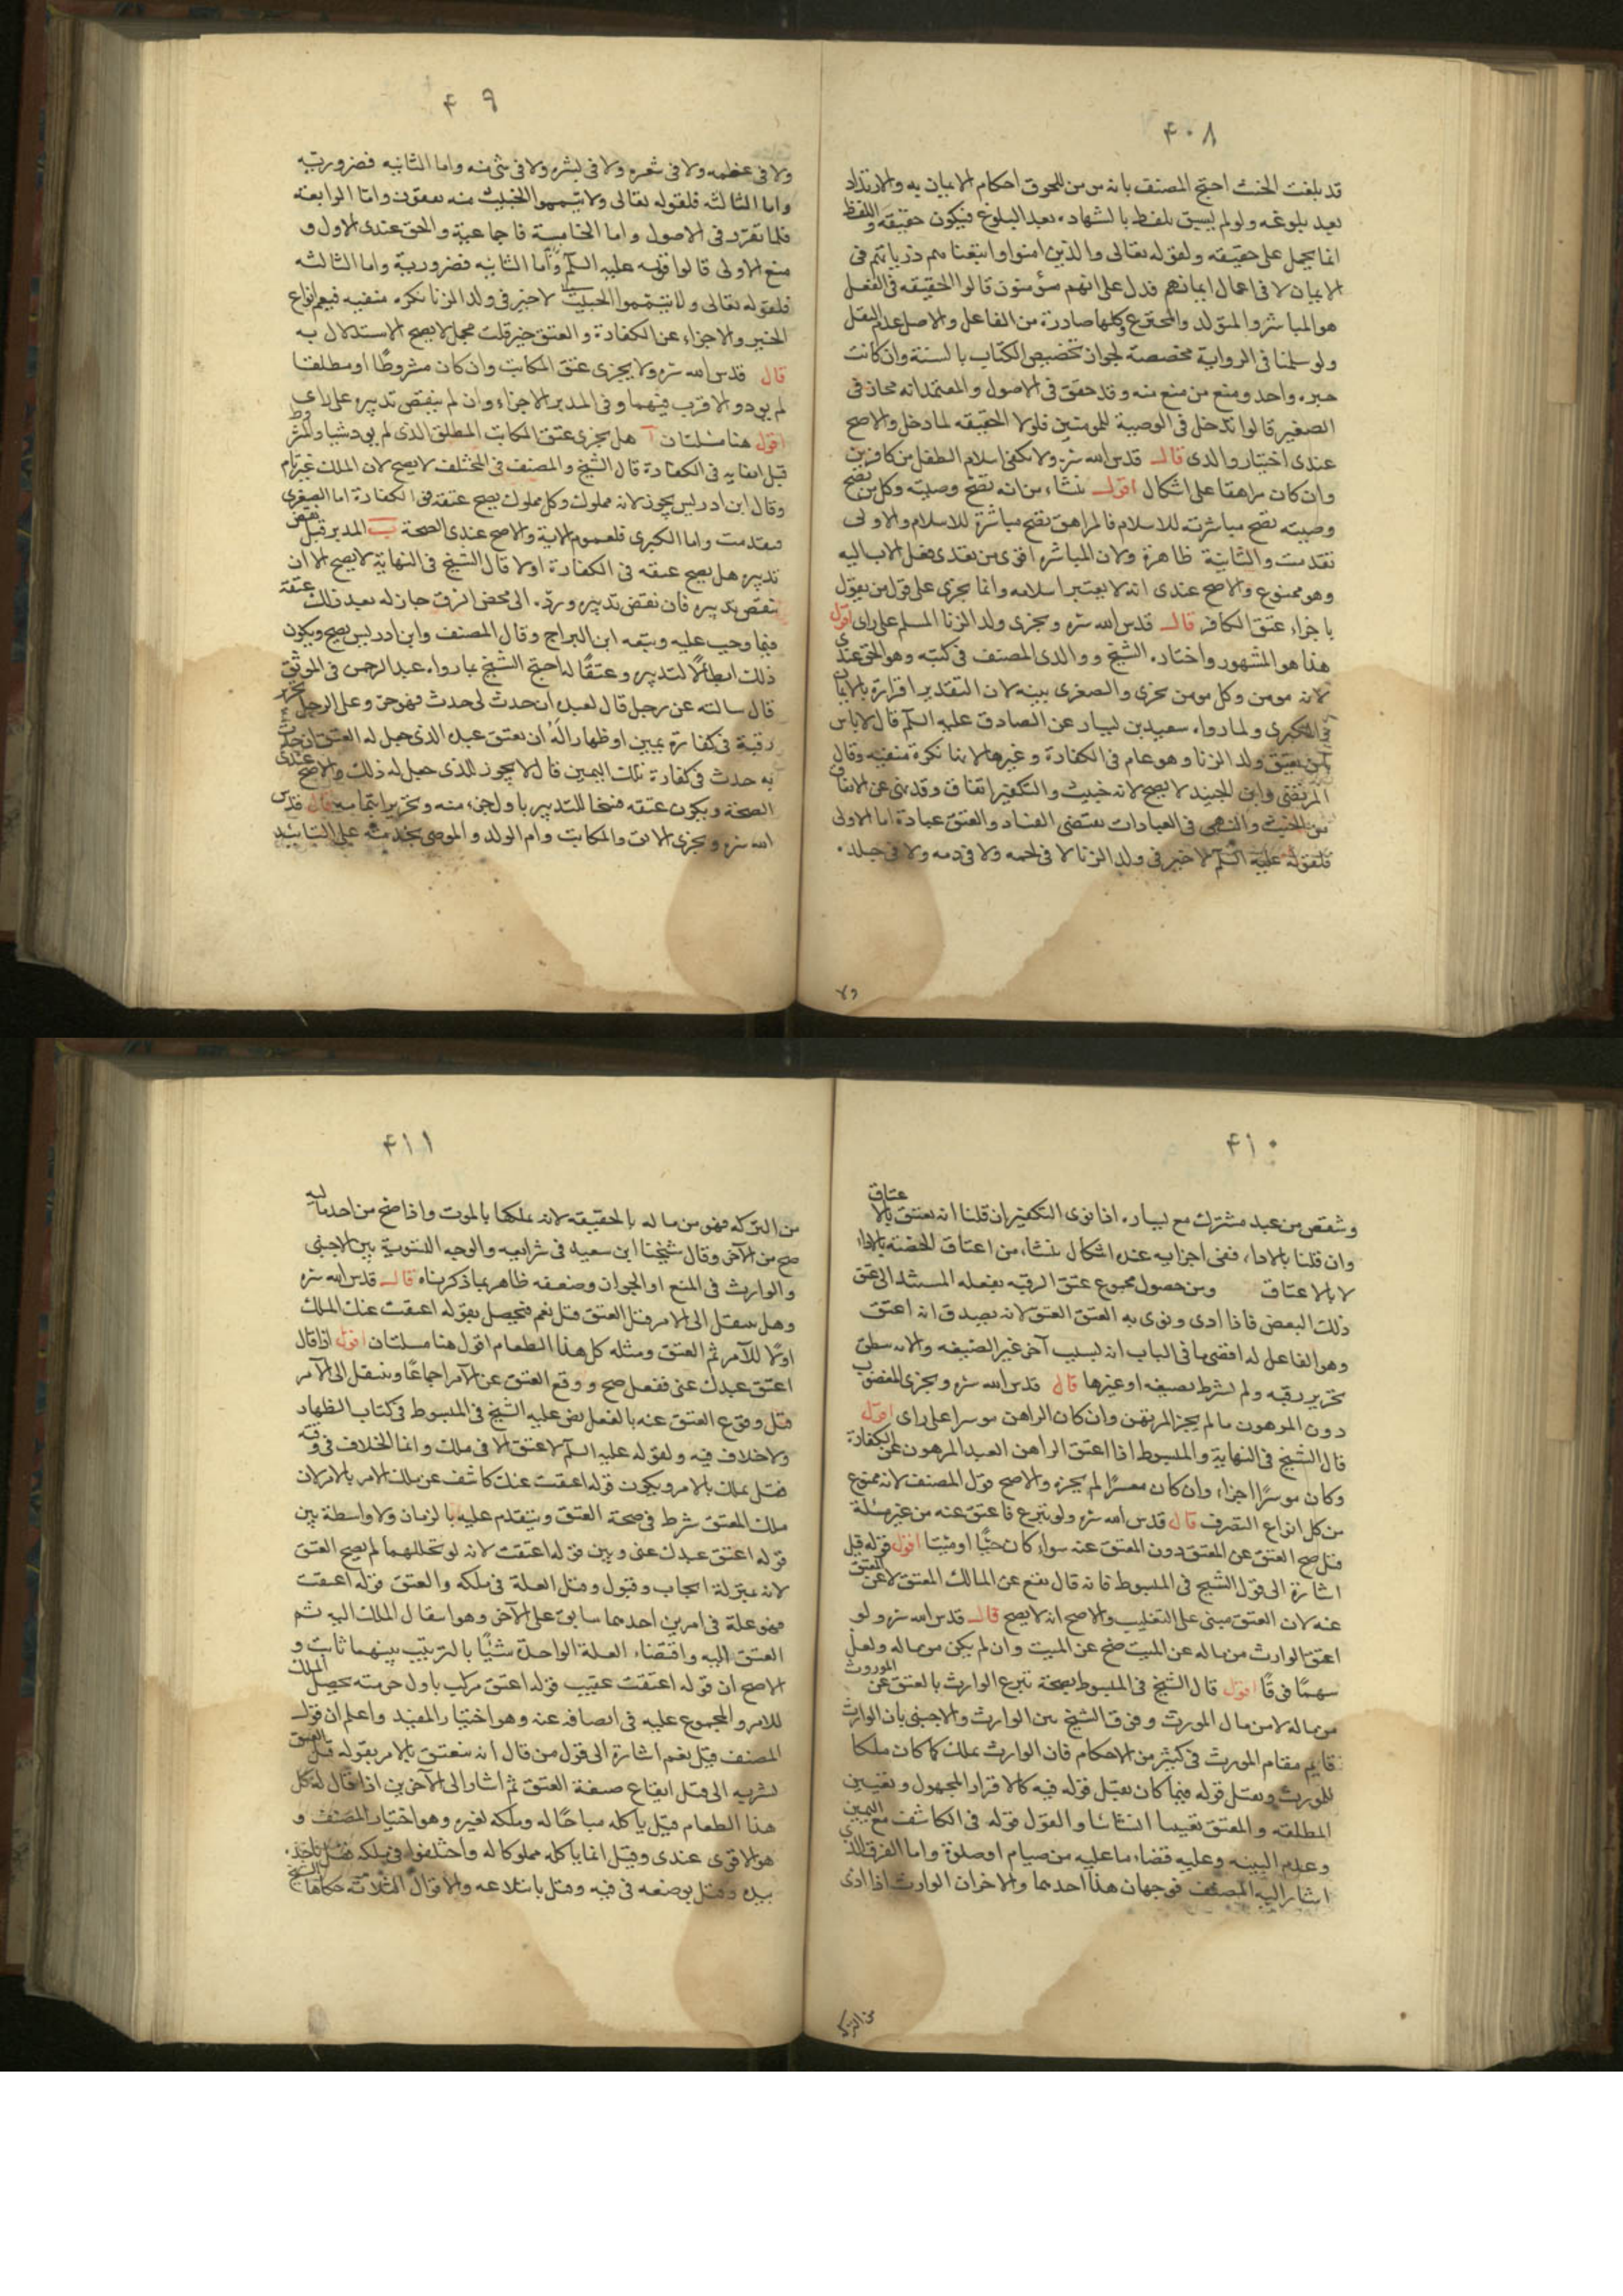 ۴۰۸
قد بلغت الحنث احتج المصنف بانه من للحوق احكام الايمان به والارتداد
بعد بلوغه ولو لم يسبق تلفظ بالشهادة بعد البلوغ فيكون حقيقة واللفظ
انما يحمل على حقيقته ولقوله تعالى والذين امنوا واتبعناهم ذرياتهم فى
الايمان لا فى اعمال ايمانهم فدل على انهم مؤمنون قالوا الحقيقه فى الفعل
هو المباشر والمتولد والمخترع وكلها صادرة من الفاعل والاصل عدم النقل
ولو سلمنا فى الرواية مخصصة لجواز تخصيص الكتاب بالسنة وان كانت
خبر واحد ومنع من منع منه وقد حقق فى الاصول والمعتمد انه مجاز فى
الصغير قالوا يدخل فى الوصية للمومنين فلولا الحقيقه لما دخل والاصح
عندى اختيار والدى قال قدس الله سره ولا يكفى اسلام الطفل من كافرين
وان كان مراهقا على اشكال اقول ينشاء من انه تصح وصيته وكل من تصح
وصيته تصح مباشرته للاسلام فالمراهق تصح مباشرة للاسلام والاولى
تقدمت والثانية ظاهرة ولان المباشر اقوى من تعدى فعل الاب اليه
وهو ممنوع والاصح عندى انه لا يعتبر اسلامه وانما يجزى على قول من يقول
باجزاء عتق الكافر قال قدس الله سره ويجزى ولد الزنا المسلم على راى اقول
هذا هو المشهور واختاره الشيخ ووالدى المصنف فى كتبه وهو الحق عندى
لانه مومن وكل مومن يجزى والصغرى بينه لان التقدير اقراره بالايمان
فى الكبرى ولما رواه سعيد بن يسار عن الصادق عليه السلم قال لا باس
بان يعتق ولد الزنا وهو عام فى الكفارة وغيرها لانها نكرة منفيه وقال
المرتضى وابن الجنيد لا يصح لانه خبيث والتكفير انفاق وقد نهى عن الانفاق
من الخبيث والنهى فى العبادات يقتضى الفساد والعتق عبادة اما الاولى
فلقوله عليه السلم لا خير فى ولد الزنا لا فى لحمه ولا فى دمه ولا فى جلده
ولا
۴۹
ولا فى عظمه ولا فى شعره ولا فى بشره ولا فى شئ منه واما الثانيه فضرورتيه
واما الثالثه فلقوله تعالى ولا تيمموا الخبيث منه تنفقون واما الرابعة
فلما تقرر فى الاصول واما الخامسة فاجماعية والحق عندى الاول و
منع الاولى قالوا قوله عليه السلم واما الثانيه فضرورية واما الثالثه
فلقوله تعالى ولا تيمموا الخبيث لا خير فى ولد الزنا نكره منفيه فيعم انواع
الخير والاجزاء عن الكفارة والعتق خير قلت مجمل لا يصح الاستدلال به
قال قدس الله سره ولا يجزى عتق المكاتب وان كان مشروطا او مطلقا
لم يود والاقرب فيهما وفى المدبر الاجزاء وان لم ينقض تدبيره على راى
اقول هنا مسلتان آ هل يجزى عتق المكاتب المطلق الذى لم يود شيا والمشروط
قبل ادائه فى الكفارة قال الشيخ والمصنف فى المختلف لا يصح لان الملك غير تام
وقال ابن ادريس يجوز لانه مملوك وكل مملوك يصح عتقه فى الكفارة اما الصغرى
فتقدمت واما الكبرى فلعموم الاية والاصح عندى الصحة ب المدبر قبل نقض
تدبيره هل يصح عتقه فى الكفارة اولا قال الشيخ فى النهاية لا يصح الا ان
ينقض تدبيره فان نقض تدبيره ورده الى محض الرق جاز له بعد ذلك عتقه
فيما وجب عليه وتبعه ابن البراج وقال المصنف وابن ادريس يصح ويكون
ذلك ابطالا لتدبيره وعتقا له احتج الشيخ بما رواه عبد الرحمن فى الموثق
قال سالته عن رجل قال لعبده ان حدث لى حدث فهو حر وعلى الرجل تحرير
رقبة فى كفارة يمين او ظهار اله ان يعتق عبده الذى جعل له العتق ان حدث
به حدث فى كفارة تلك اليمين قال لا يجوز للذى جعل له ذلك والاصح عندى
الصحة ويكون عتقه فسخا للتدبير باول جزء منه وتحرير بتمامه قال قدس
الله سره ويجزى الابق والمكاتب وام الولد والموصى بخدمته على التابيد
۴۱۰
وشقص من عبد مشترك مع يساره اذا نوى التكفير ان قلنا انه يعتق بالاعتاق
وان قلنا بالاداء ففى اجزايه عنده اشكال ينشاء من اعتاق الحصة بالاداء
لا بالاعتاق ومن حصول مجموع عتق الرقبه بفعله المستند الى عتق
ذلك البعض فاذا ادى ونوى به العتق العتق لانه يصدق انه اعتق
وهو الفاعل له اقضى ما فى الباب انه لسبب آخر غير الصيغه والامر مطلق
بتحرير رقبه ولم يشرط بصيغه او غيرها قال قدس الله سره ويجزى المغصوب
دون المرهون ما لم يجز المرتهن وان كان الراهن موسرا على راى اقول
قال الشيخ فى النهاية والمبسوط اذا اعتق الراهن العبد المرهون عن الكفارة
وكان موسرا اجزاء وان كان معسرا لم يجزه والاصح قول المصنف لانه ممنوع
من كل انواع التصرف قال قدس الله سره ولو تبرع فاعتق عنه من غير مسئلة
قيل صح العتق عن المعتق دون المعتق عنه سواء كان حيا او ميتا اقول قوله قيل
اشارة الى قول الشيخ فى المبسوط فانه قال يقع عن المالك المعتق لا عن المعتق
عنه لان العتق مبنى على التغليب والاصح انه لا يصح قال قدس الله سره ولو
اعتق الوارث من ماله عن الميت صح عن الميت وان لم يكن من ماله ولعل
سهما فرقا اقول قال الشيخ فى المبسوط بصحة تبرع الوارث بالعتق عن الموروث
من ماله لا من مال المورث وفرق الشيخ بين الوارث والاجنبى بان الوارث
قايم مقام المورث فى كثير من الاحكام فان الوارث يملك كما كان ملكا
للمورث ويقبل قوله فيما كان يقبل قوله فيه كالاقرار المجهول وتعيين
المطلقه والمعتق تعيينا انشائيا والقول قوله فى الكاشف مع اليمين
وعدم البينه وعليه قضاء ما عليه من صيام او صلوة واما الفرق الذى
اشار اليه المصنف فوجهان هذا احدهما والاخر ان الوارث اذا ادى
من التركه
۴۱۱
من التركه فهو من ماله بالحقيقه لانه يملكها بالموت واذا صح من احد ماليه
صح من الآخر وقال شيخنا ابن سعيد فى شرايعه والوجه التسوية بين الاجنبى
والوارث فى المنع او الجواز وضعفه ظاهر بما ذكرناه قال قدس الله سره
وهل ينتقل الى الامر قبل العتق قيل نعم فيحصل بقوله اعتقت عنك الملك
اولا للآمر ثم العتق ومثله كل هذا الطعام اقول هنا مسلتان اقول اذا قال
اعتق عبدك عنى ففعل صح ووقع العتق عن الآمر اجماعا وينتقل الى الآمر
قبل وقوع العتق عنه بالفعل نص عليه الشيخ فى المبسوط فى كتاب الظهار
ولا خلاف فيه ولقوله عليه السلم لا عتق الا فى ملك وانما الخلاف فى وقته
فقيل يملك بالامر ويكون قوله اعتقت عنك كاشف عن ملك الامر بالامر لان
ملك المعتق شرط فى صحة العتق ويتقدم عليه بالزمان ولا واسطة بين
قوله اعتق عبدك عنى وبين قوله اعتقت لانه لو تخللهما لم يصح العتق
لانه بمنزلة ايجاب وقبول وقيل العلة فى ملكه والعتق قوله اعتقت
فهو علة فى امرين احدهما سابق على الآخر وهو انتقال الملك اليه ثم
العتق اليه واقتضاء العلة الواحدة شيئا بالترتيب بينهما ثابت و
الاصح ان قوله اعتقت عقيب قوله اعتق مركب باول جزئه يحصل الملك
للامر والمجموع عليه فى اتصافه عنه وهو اختيار المفيد واعلم ان قول
المصنف قيل نعم اشارة الى قول من قال انه ينعتق بالامر بقوله قبل العتق
يشربه الى قبل ايقاع صيغة العتق ثم اشار الى الآخرين اذا قال له كل
هذا الطعام قيل ياكله مباحا له وملكه لغيره وهو اختيار المصنف و
هو الاقوى عندى وقيل انما ياكله مملوكا له واختلفوا فى ملكه فقيل باخذه
بيده وقيل بوضعه فى فيه وقيل بابتلاعه والاقوال الثلاثه حكاها الشيخ